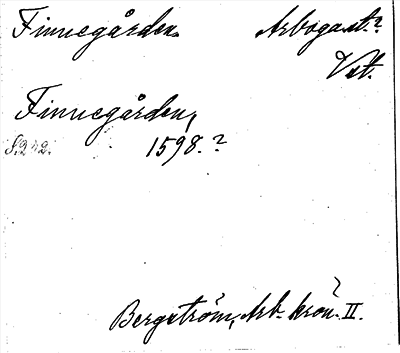 Finnegården Arboga st.?
Vst.
Finnegården,
S. 212. 1598.?
Bergström, Arb. krön. II.